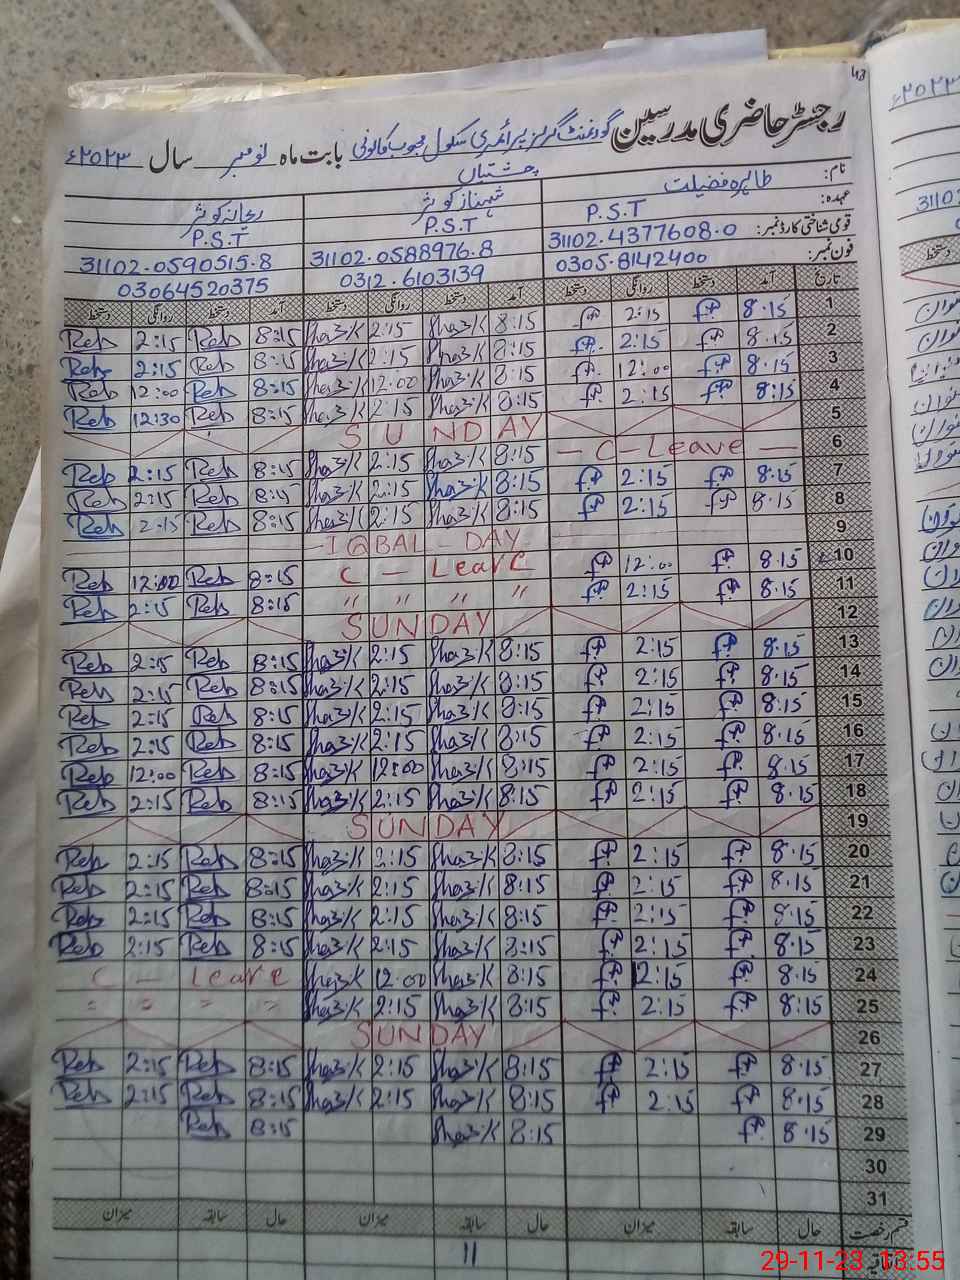 43
رجسٹر حاضری مدرسین گورنمنٹ گرلز پرائمری سکول محبوب کالونی بابت ماہ نومبر سال ۲۰۲۳ء
چشتیاں
نام: طاہرہ فضیلت شہناز کوثر ریحانہ کوثر
عہدہ: P.S.T P.S.T P.S.T
قومی شناختی کارڈ نمبر: 31102.4377608.0 31102.0588976.8 31102.0590515.8
فون نمبر: 0305.8142400 0312.6103139 03064520375
تاریخ آمد دستخط روانگی دستخط آمد دستخط روانگی دستخط آمد دستخط روانگی دستخط
1 8.15 2:15 8:15 Sha3/K 2:15 Sha3/K 8:15 Reh 2:15 Reh
2 8.15 2:15 8:15 Sha3/K 2:15 Sha3/K 8:15 Reh 2:15 Reh
3 8.15 12:00 8:15 Sha3/K 12:00 Sha3/K 8:15 Reh 12:00 Reh
4 8:15 2:15 8:15 Sha3/K 2:15 Sha3/K 8:15 Reh 12:30 Reh
5 SUNDAY
6 – C – Leave – 8:15 Sha3/K 2:15 Sha3/K 8:15 Reh 2:15 Reh
7 8.15 2:15 8:15 Sha3/K 2:15 Sha3/K 8:15 Reh 2:15 Reh
8 8.15 2:15 8:15 Sha3/K 2:15 Sha3/K 8:15 Reh 2:15 Reh
9 – IQBAL – DAY
10 8.15 12:00 C – Leave 8:15 Reh 12:00 Reh
11 8:15 2:15 " " " " 8:15 Reh 2:15 Reh
12 SUNDAY
13 8.15 2:15 8:15 Sha3/K 2:15 Sha3/K 8:15 Reh 2:15 Reh
14 8.15 2:15 8:15 Sha3/K 2:15 Sha3/K 8:15 Reh 2:15 Reh
15 8:15 2:15 8:15 Sha3/K 2:15 Sha3/K 8:15 Reh 2:15 Reh
16 8.15 2:15 8:15 Sha3/K 2:15 Sha3/K 8:15 Reh 2:15 Reh
17 8.15 2:15 8:15 Sha3/K 12:00 Sha3/K 8:15 Reh 12:00 Reh
18 8.15 2:15 8:15 Sha3/K 2:15 Sha3/K 8:15 Reh 2:15 Reh
19 SUNDAY
20 8.15 2:15 8:15 Sha3/K 2:15 Sha3/K 8:15 Reh 2:15 Reh
21 8.15 2:15 8:15 Sha3/K 2:15 Sha3/K 8:15 Reh 2:15 Reh
22 8.15 2:15 8:15 Sha3/K 2:15 Sha3/K 8:15 Reh 2:15 Reh
23 8.15 2:15 8:15 Sha3/K 2:15 Sha3/K 8:15 Reh 2:15 Reh
24 8.15 2:15 8:15 Sha3/K 12:00 Sha3/K C – Leave
25 8:15 2:15 8:15 Sha3/K 2:15 Sha3/K " " " "
26 SUNDAY
27 8.15 2:15 8:15 Sha3/K 2:15 Sha3/K 8:15 Reh 2:15 Reh
28 8.15 2:15 8:15 Sha3/K 2:15 Sha3/K 8:15 Reh 2:15 Reh
29 8.15 8:15 Sha3/K 8:15 Reh
30
31
قسم رخصت حال سابقہ میزان حال سابقہ میزان حال سابقہ میزان
11
29-11-23 13:55